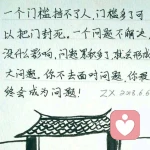 一个门槛挡不了人,门槛多了可
以把门封死。一个问题不解决,
没什么影响,问题累积多了,就会形成
大问题。你不去面对问题,你最
终会成为问题!